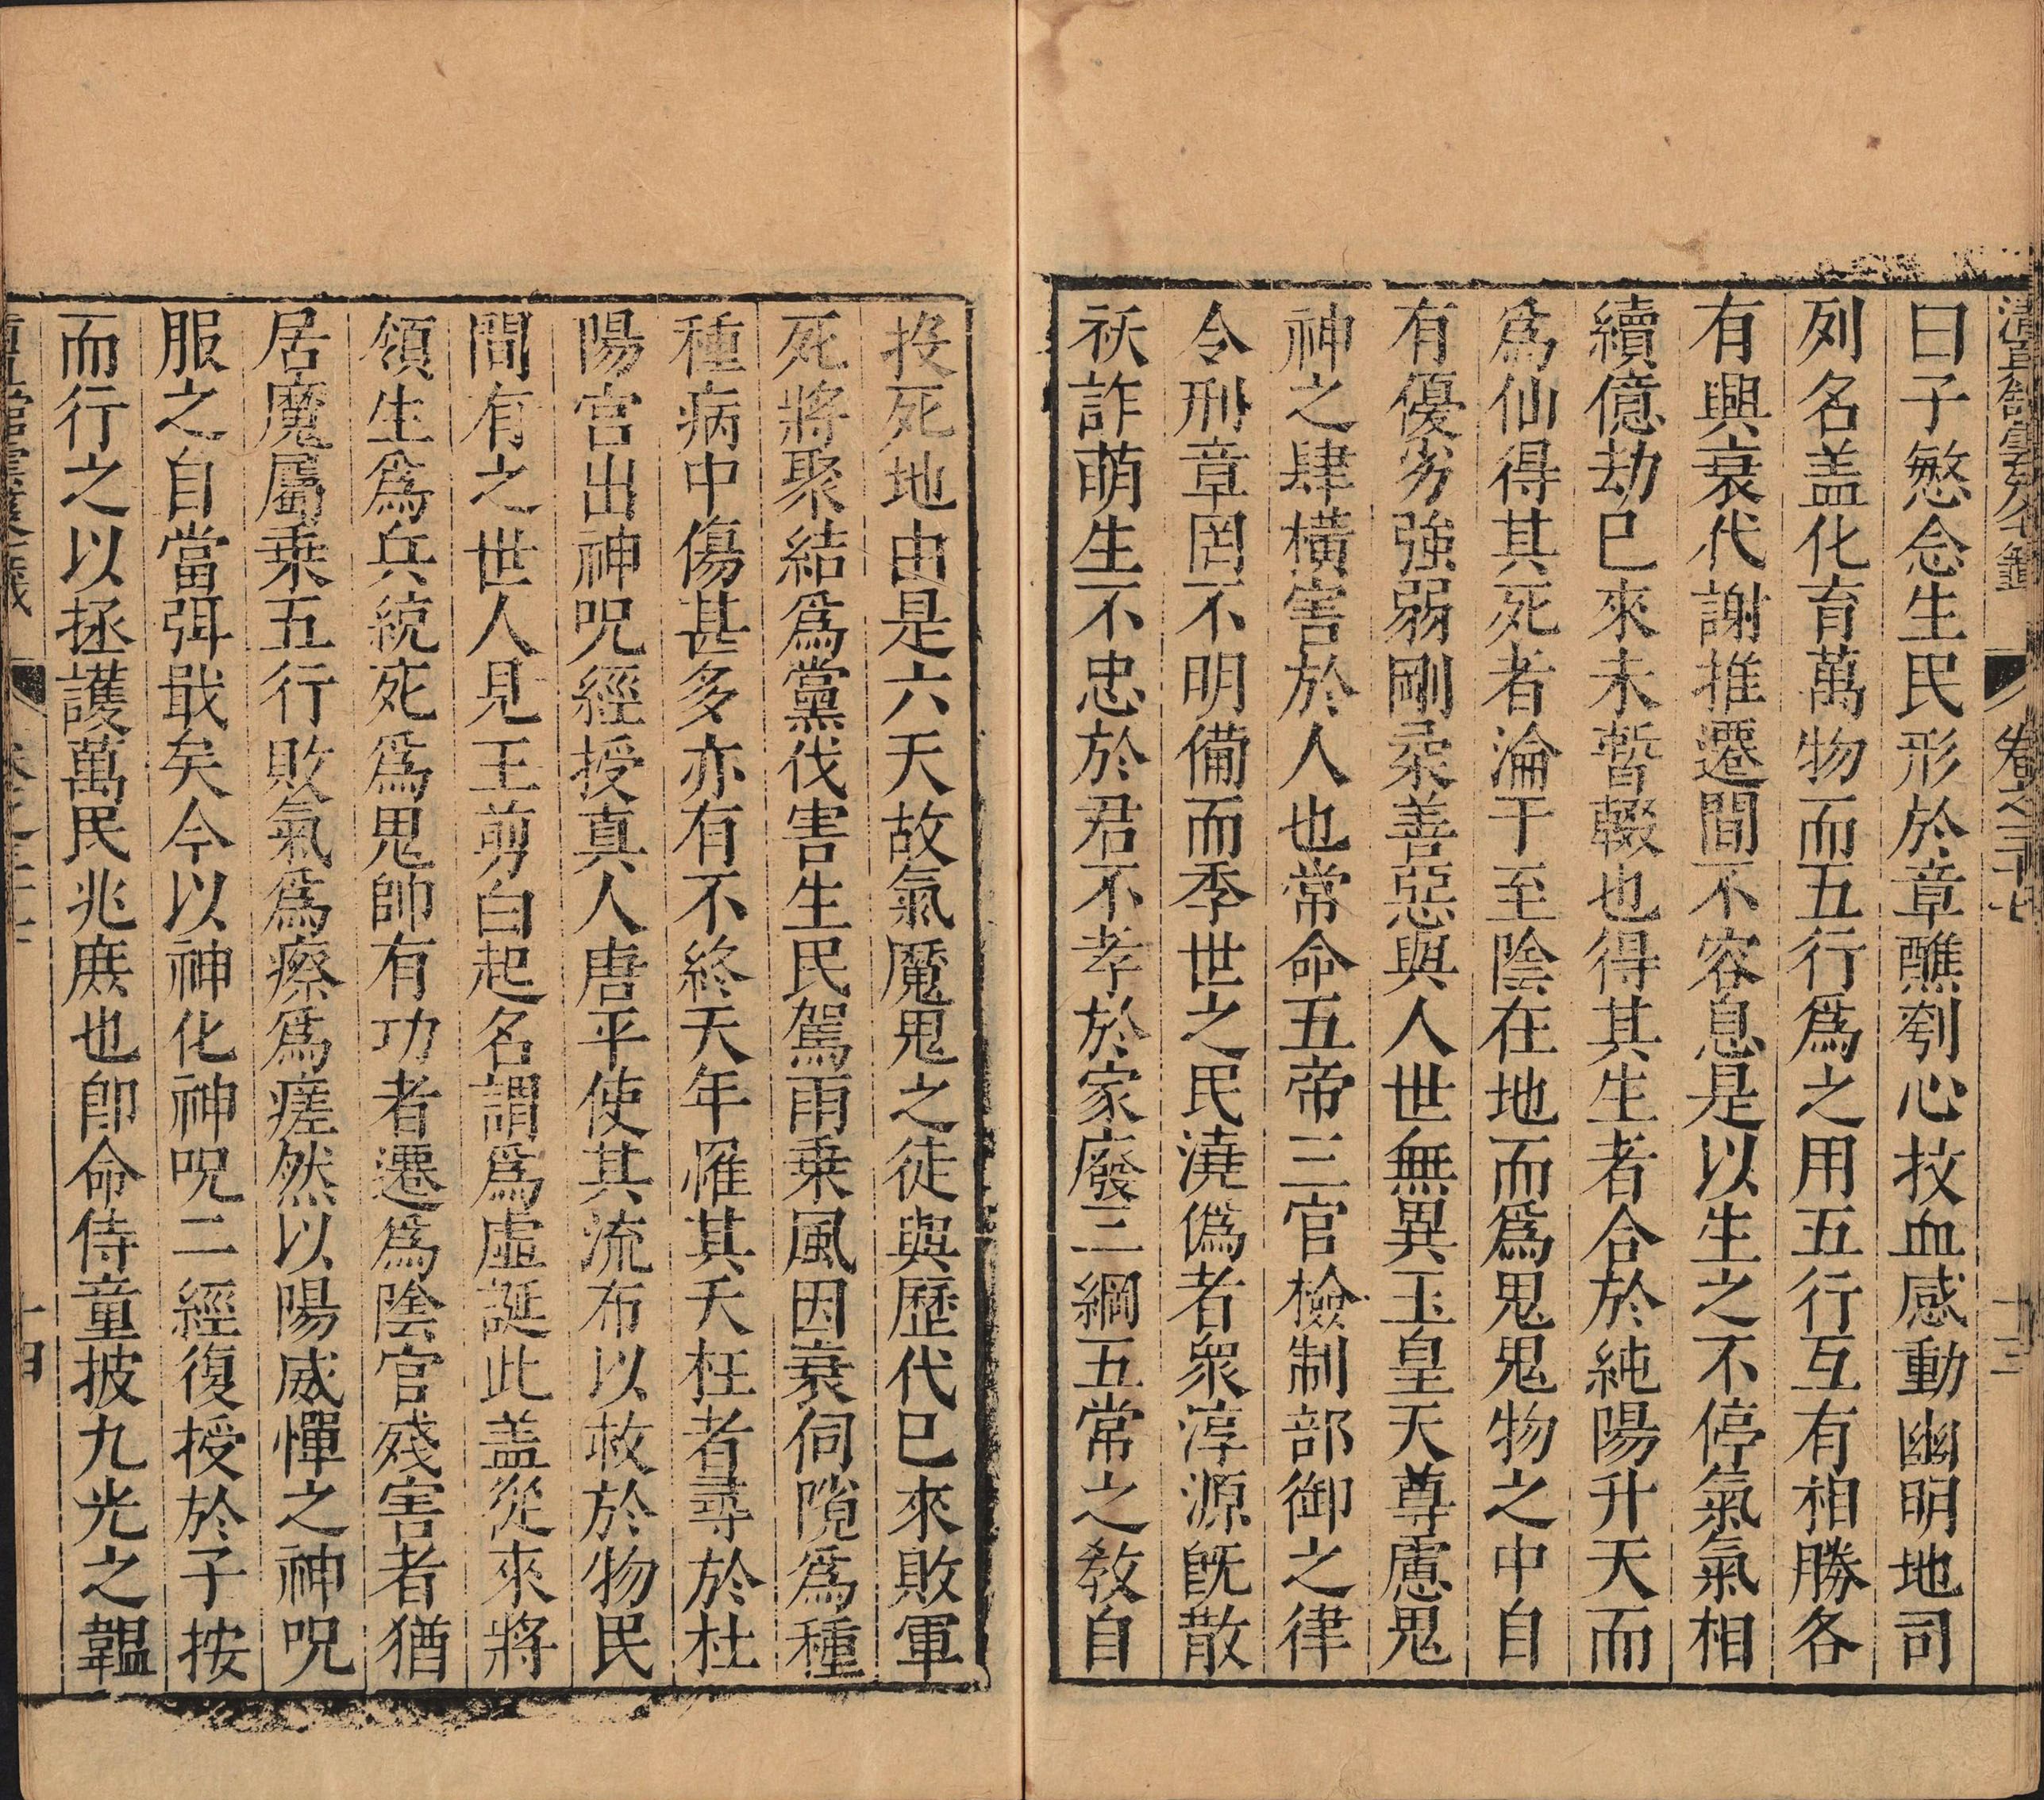 清眞館雲笈七籤 卷之二十七 十三
曰子愍念生民形於章醮刳心抆血感動幽明地司
列名盖化育萬物而五行爲之用五行互有相勝各
有興衰代謝推遷間不容息是以生之不停氣氣相
續億劫已來未暫輟也得其生者合於純陽升天而
爲仙得其死者淪于至陰在地而爲鬼鬼物之中自
有優劣強弱剛柔善惡與人世無異玉皇天尊慮鬼
神之肆橫害於人也常命五帝三官檢制部御之律
令刑章罔不明備而季世之民澆僞者衆淳源旣散
袄詐萌生不忠於君不孝於家廢三綱五常之教自
投死地由是六天故氣魔鬼之徒與歷代已來敗軍
死將聚結爲黨伐害生民駕雨乗風因衰伺隙爲種
種病中傷甚多亦有不終天年罹其夭枉者尋於杜
陽宮出神呪經授真人唐平使其流布以救於物民
間有之世人見王剪白起名謂爲虛誕此盖從來將
領生爲兵統死爲鬼帥有功者遷爲陰官殘害者猶
居魔屬乗五行敗氣爲瘵爲瘥然以陽威憚之神呪
服之自當弭戢矣今以神化神呪二經復授於子按
而行之以拯護萬民兆庶也卽命侍童披九光之韞